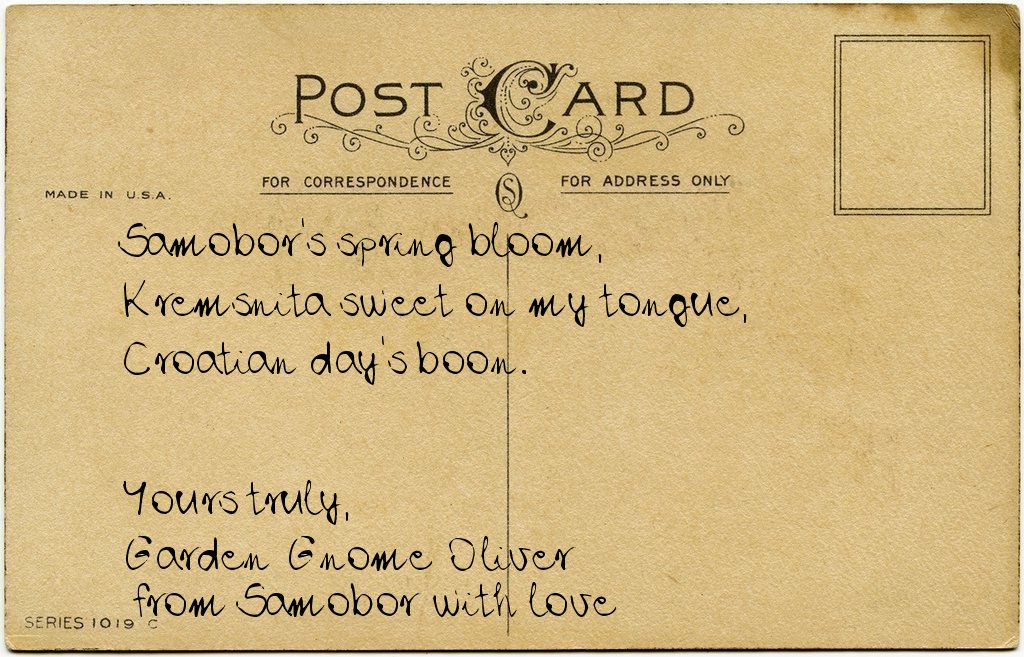 POST CARD
FOR CORRESPONDENCE
FOR ADDRESS ONLY
MADE IN U.S.A.
Samobor's spring bloom,
Kremsnita sweet on my tongue,
Croatian day's boon.
Yours truly,
Garden Gnome Oliver
from Samobor with love
SERIES 1019 C